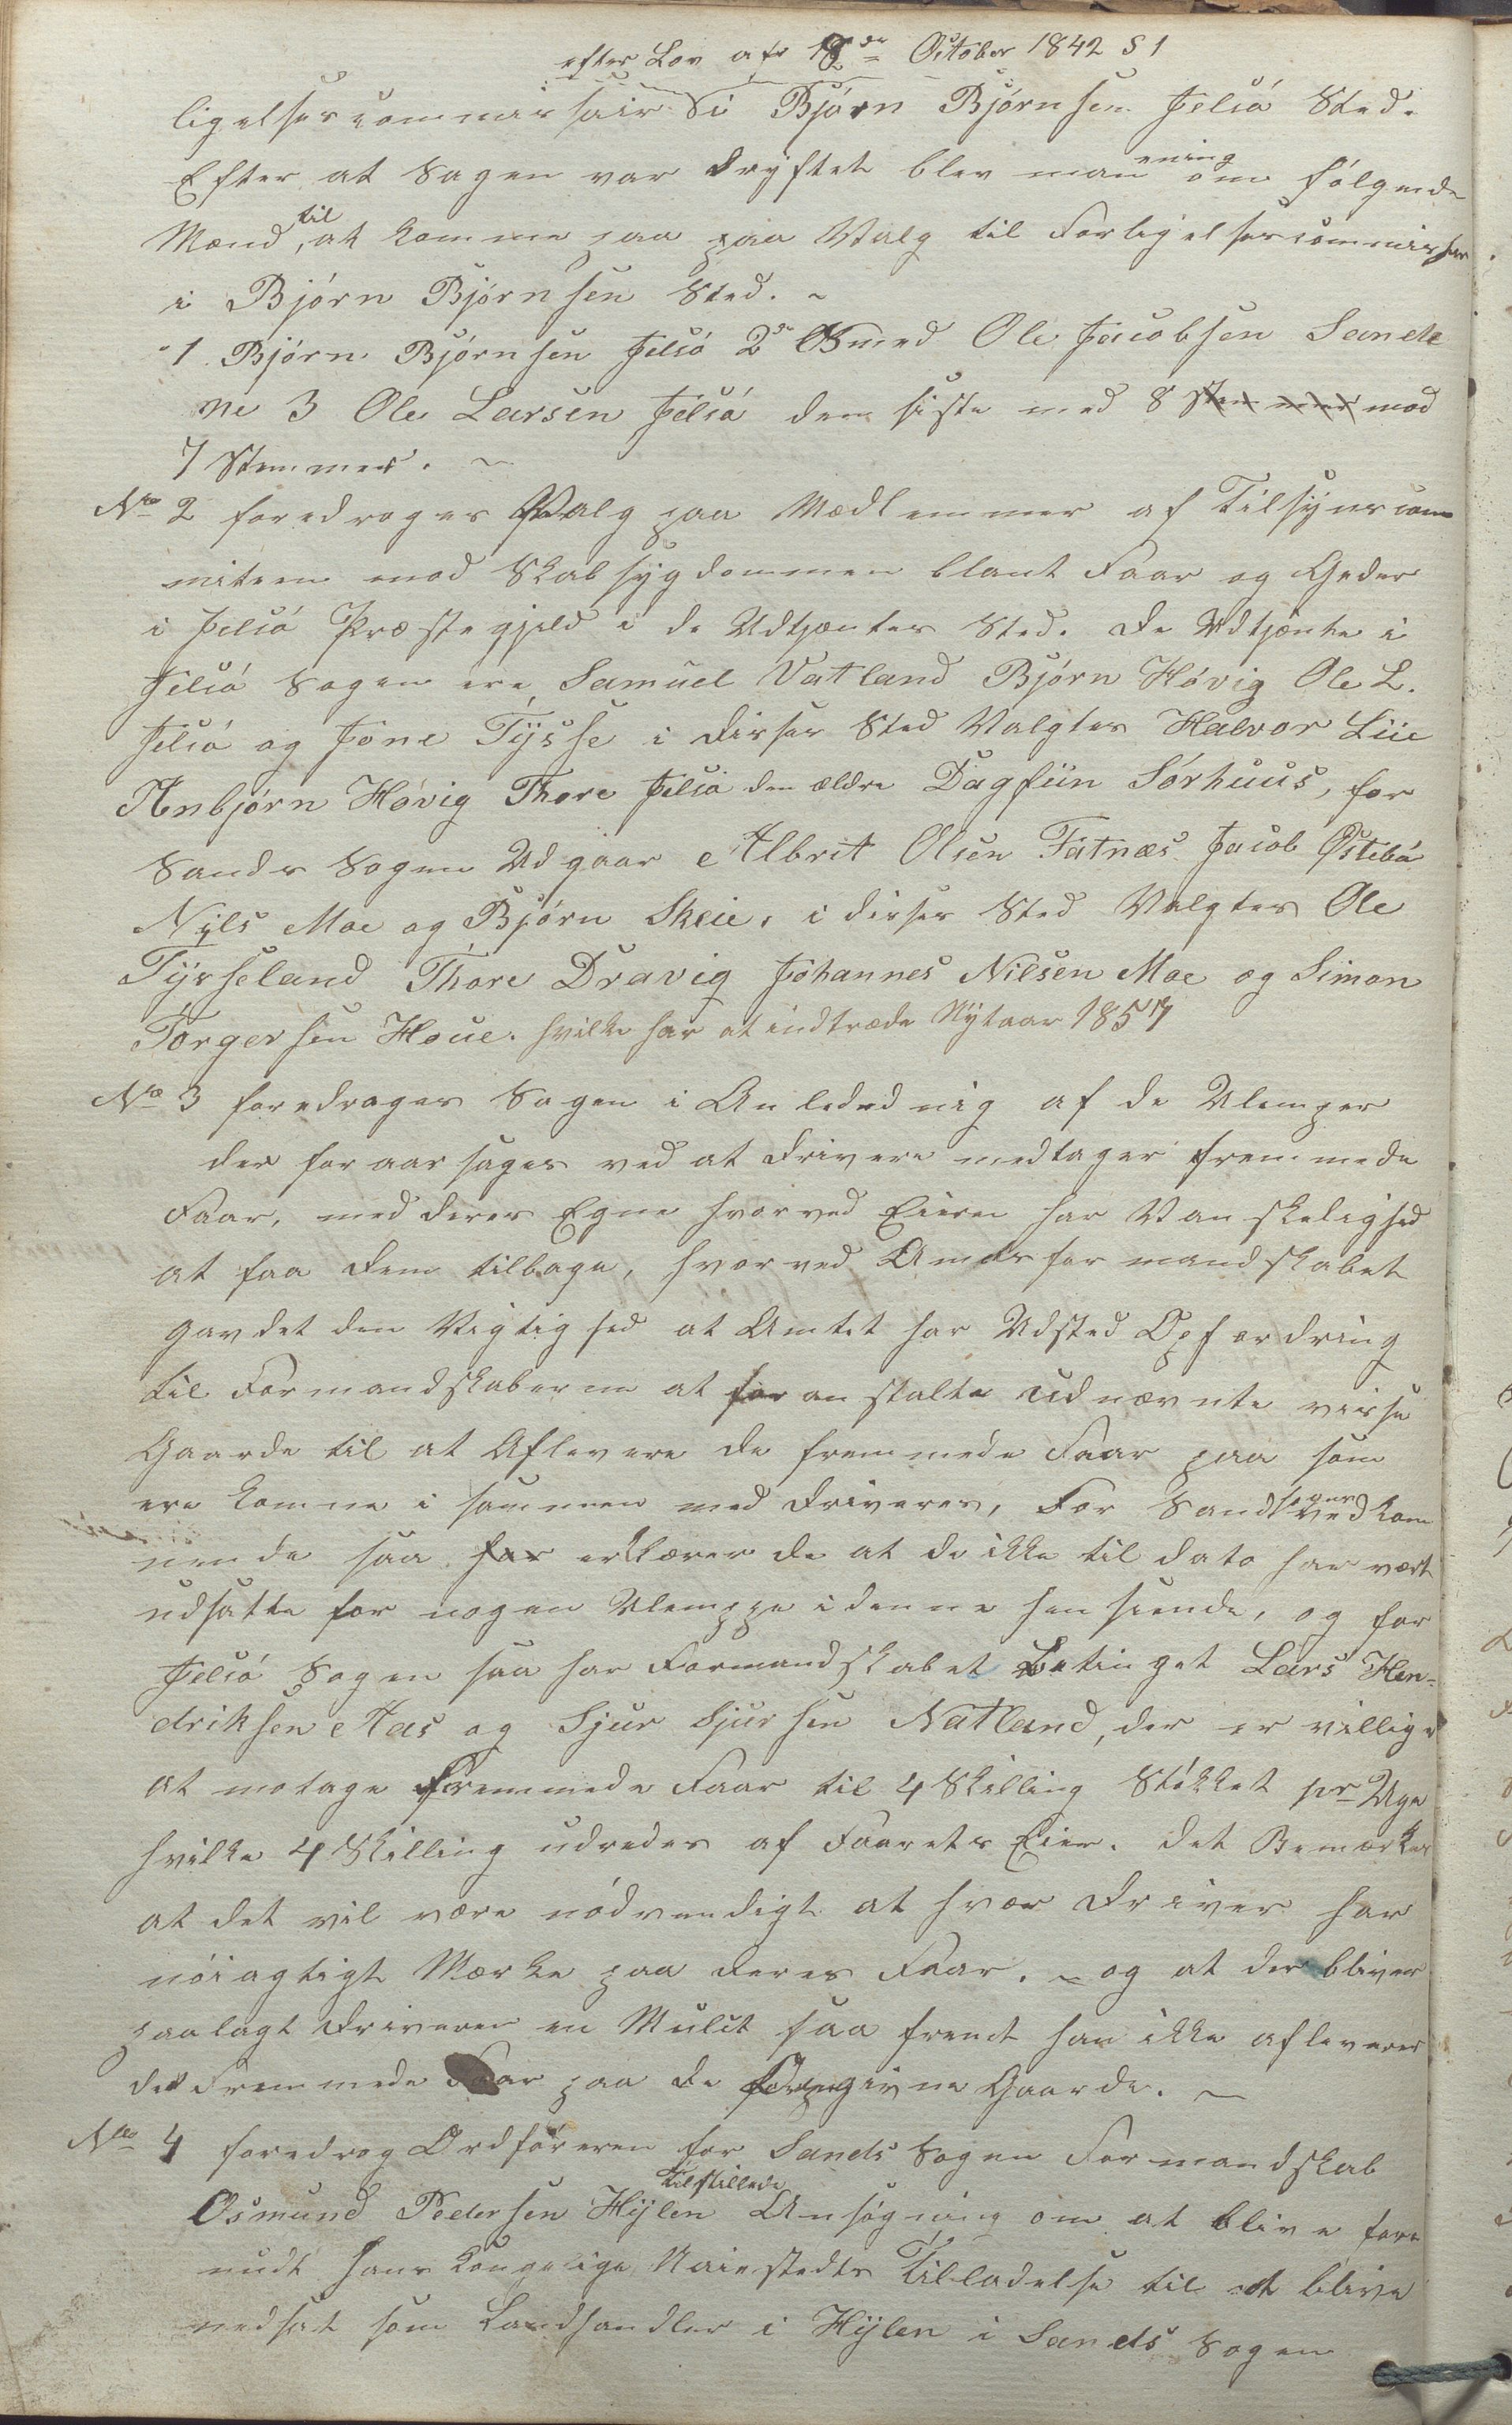 efter Lov afr 12de October 1842 § 1
ligelsescommissair Si Bjørn Bjørnsen Jelsø Sted.
Efter at Sagen var dryftet blev man ening om følgende
Mænd, til at komme paa paa Valg til Forligelsescommissær
i Bjørn Bjørnsen Sted. ~
1 Bjørn Bjørnsen Jelsø 2de Osmund Ole Jacobsen Sande
ne 3 Ole Larsen Jelsø den siste med 8 Stemmer mod
7 Stemmer. ~
No 2 foredroges Valg paa Medlemmer af Tilsynscom
miteen mod Skabsygdommen blant Faar og Geder
i Jelsø Præstegjeld i de Udtjentes Sted. De Udtjente i
Jelsø Sogen ere Samuel Vatland Bjørn Høvig Ole L.
Jelsø og Jone Tysse i disses Sted Valgtes Halvor Lie
Anbjørn Høvig Thore Jelsø den ældre Dagfin Sørhuus, for
Sands Sogen Udgaar Albrit Olsen Fatnæs Jacob Østebø
Nils Moe og Bjørn Skeie, i disses Sted Valgtes Ole
Tysseland Thore Dravig Johannes Nilsen Moe og Simon
Torgersen Houe. hvilke har at indtræde Nytaar 1857
No 3 foredroges Sagen i Anledednig af de Ulemper
der foraarsages ved at Drivere medtager fremmede
Faar, med deres Egne hvorved Eieren har Vanskelighed
at faa dem tilbage, hvorved Amdsformandskabet
gav det den Vigtighed at Amtet har Udsted Opfordring
til Formandskaberne at foranstalte udnævnte visse
Gaarde til at Aflevere de fremmede Faar paa som
ere komne i sammen med Driveres, For Sands Sogen vedkom
mende saa har erklærer de at de ikke til dato har vært
udsatte for nogen Ulemppe i denne hensiende, og for
Jelsø Sogen saa har Formandskabet Betinget Lars Hen-
driksen Aas og Sjur Sjursen Natland, der er villige
at motage Fremmede Faar til 4 Skilling Støkket pr Uge
hvilke 4 Skilling udredes af Faarets Eier. Det Bemærkes
at det vil være nødvendigt at hver Driver har
nøiagtigt Mærke paa deres Faar. ~ og at der bliver
paalagt Driveren en Mulct saa fremt han ikke afleverer
det Fremmede Faar paa de Opgivne Gaarde. ~
No 4 foredrog Ordføreren for Sands Sogen Formandskab
Osmund Pedersen Hylen tilstillede Ansøgning om at blive fore
undt Hans Kongelige Maiestedts Tilladelse til at blive
nedsat som Landhandler i Hylen i Sands Sogen